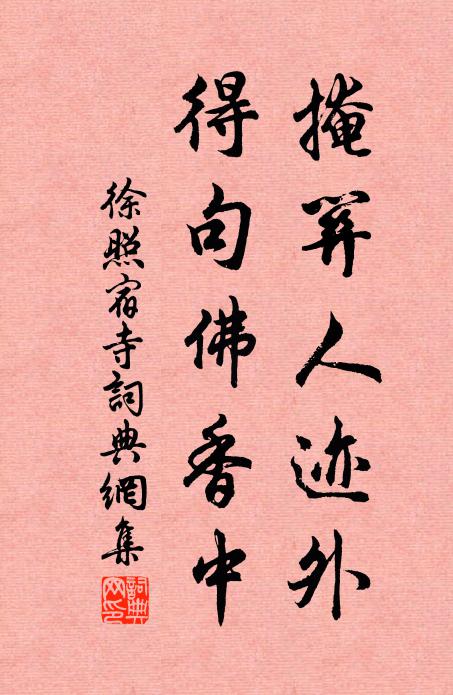 掩關人迹外
得句佛香中
徐照宿寺詞典網集
詞典网印